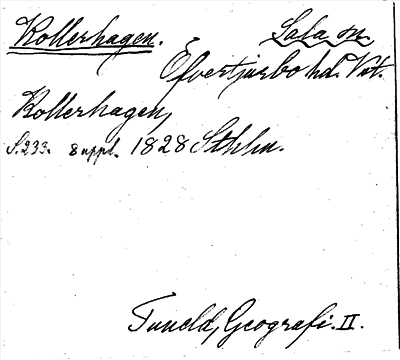 Kollerhagen. Sala sn.
Öfvertjurbo hd. Vstl.
Kollerhagen,
S. 233. 8 uppl. 1828 Sthlm.
Tuneld, Geografi. II.